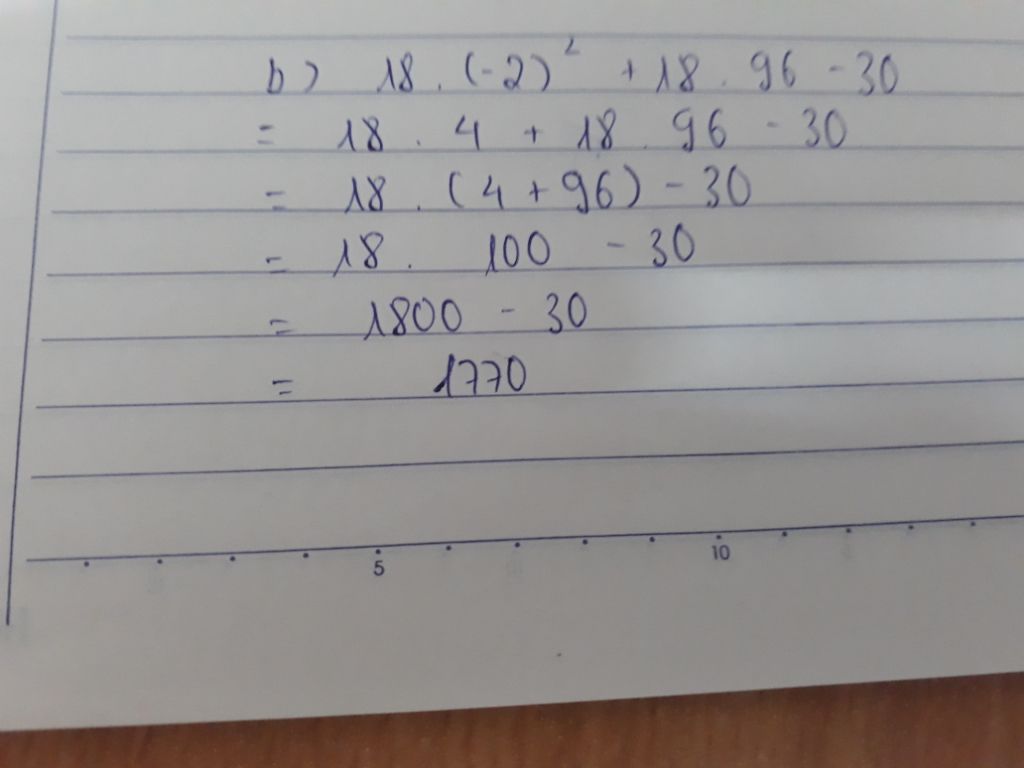 b) 18 . (-2)² + 18 . 96 - 30
= 18 . 4 + 18 . 96 - 30
= 18 . (4 + 96) - 30
= 18 . 100 - 30
= 1800 - 30
= 1770
5 10